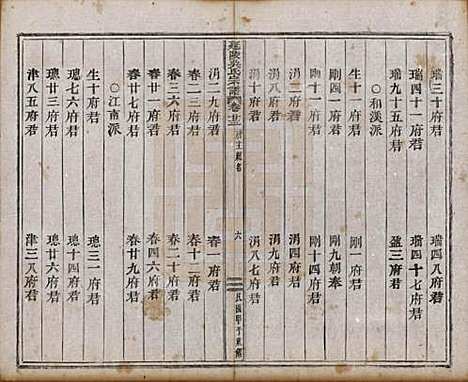 瑞三十府君　瑞四八府君
瑞四十一府君　瑞四十七府君
瑞九十五府君　盈三府君
○和溪派
生十一府君
剛四一府君　剛九朝奉
剛十一府君　剛十四府君
涓三府君　涓四府君
涓八府君　涓十府君
涓十府君　涓八七府君
卷廿三
六
民國甲子重修
涓二九府君　春一府君
春二三府君　春十二府君
春三六府君　春二十府君
春廿一府君　春四六府君
春廿八府君　春廿九府君
○江南派
生十府君　璁三一府君
璁七六府君　璁十四府君
璁一府君　璁廿六府君
津八五府君　津三八府君